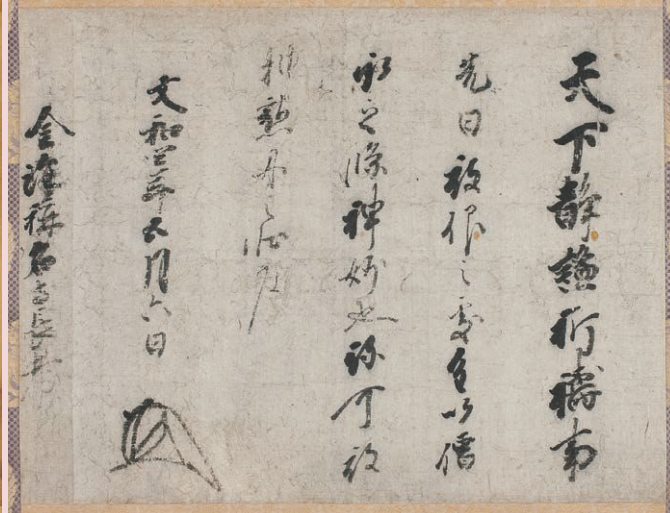 天下静謐祈禱事
先日被仰之處重以僧
之條神妙也弥可被
抽懇丹之状如件
文和四年六月六日
金澤称名寺長老